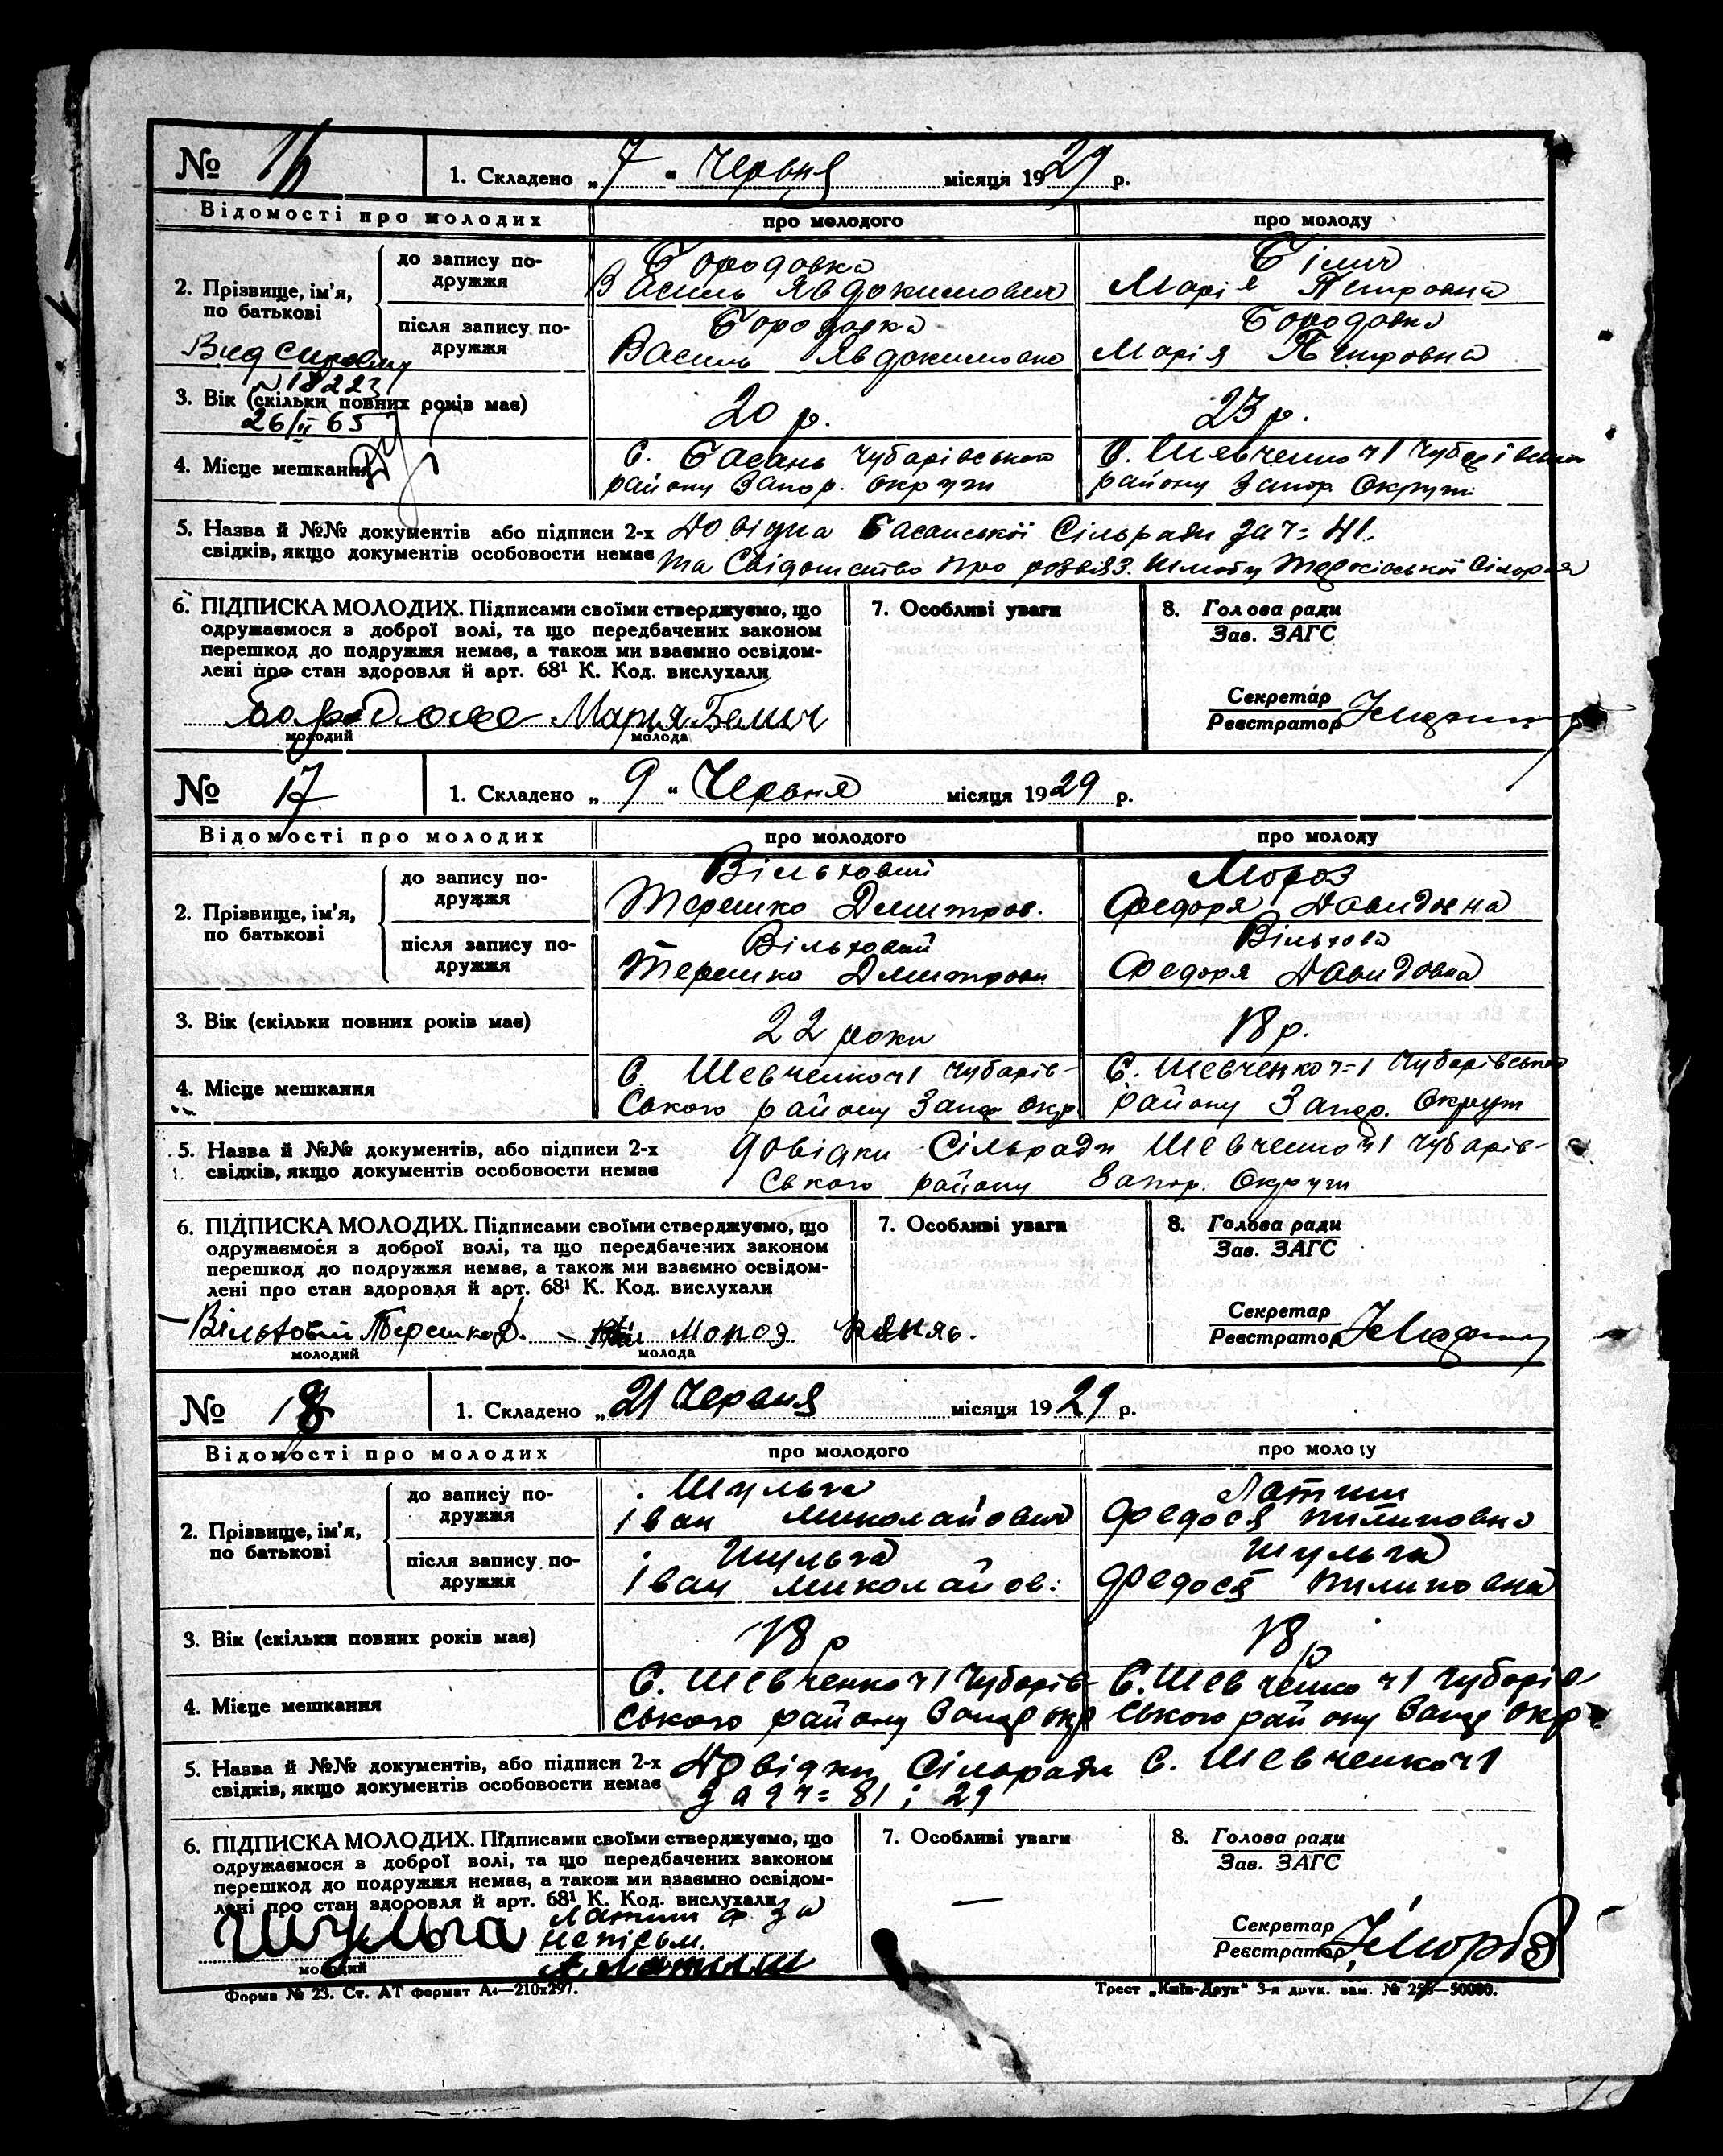 № 16
1. Складено „7“ Червня місяця 1929 р.
Відомості про молодих
про молодого
про молоду
2. Прізвище, ім'я, по батькові
до запису подружжя
Бородовка
Василь Явдокимович
Білич
Марія Петровна
після запису подружжя
Бородовка
Василь Явдокимович
Бородовка
Марія Петровна
Вид
№ 18223
26/II 65
3. Вік (скільки повних років має)
20 р.
23 р.
4. Місце мешкання
С. Басань Чубарівського
району Запор. Округи
С. Шевченко ч 1 Чубарівського
району Запор Округи
5. Назва й №№ документів або підписи 2-х
свідків, якщо документів особовости немає
Довідка Басанської Сільради за ч= 41.
та Свідотство про розвяз. шлюбу Сільради
6. ПІДПИСКА МОЛОДИХ. Підписами своїми стверджуємо, що
одружаємося з доброї волі, та що передбачених законом
перешкод до подружжя немає, а також ми взаємно освідом-
лені про стан здоровля й арт. 68¹ К. Код. вислухали
Мария Белич
молодий
молода
7. Особливі уваги
8. Голова ради
Зав. ЗАГС
Секретар
Реєстратор
№ 17
1. Складено „9“ Червня місяця 1929 р.
Відомості про молодих
про молодого
про молоду
2. Прізвище, ім'я, по батькові
до запису подружжя
Вільховий
Терешко Дмитров.
Мороз
Федоря Давидовна
після запису подружжя
Вільховий
Терешко Дмитрови
Вільхова
Федоря Давидовна
3. Вік (скільки повних років має)
22 роки
18 р.
4. Місце мешкання
С. Шевченко ч 1 Чубарів-
ського району Запор окр.
С. Шевченко ч=1 Чубарівсько
району Запор. Округи
5. Назва й №№ документів, або підписи 2-х
свідків, якщо документів особовости немає
Довідки Сільради Шевченко ч 1 Чубарів-
ського району Запор. Округи
6. ПІДПИСКА МОЛОДИХ. Підписами своїми стверджуємо, що
одружаємося з доброї волі, та що передбачених законом
перешкод до подружжя немає, а також ми взаємно освідом-
лені про стан здоровля й арт. 68¹ К. Код. вислухали
Вільховий Терешко Д. Мороз
молодий
молода
7. Особливі уваги
8. Голова ради
Зав. ЗАГС
Секретар
Реєстратор
№ 18
1. Складено „21 Червня місяця 1929 р.
Відомості про молодих
про молодого
про молоду
2. Прізвище, ім'я, по батькові
до запису подружжя
Шульга
Іван Миколайович
Латиш
Федося Пилиповна
після запису подружжя
Шульга
Іван Миколайов:
Шульга
Федося Пилиповна
3. Вік (скільки повних років має)
18 р
18 р
4. Місце мешкання
С. Шевченко ч 1 Чубарів-
ського району Запор окр
С. Шевченко ч 1 Чубарів-
ського району Запор окр
5. Назва й №№ документів, або підписи 2-х
свідків, якщо документів особовости немає
Довідки Сільради С. Шевченко ч 1
за ч= 81 і 29
6. ПІДПИСКА МОЛОДИХ. Підписами своїми стверджуємо, що
одружаємося з доброї волі, та що передбачених законом
перешкод до подружжя немає, а також ми взаємно освідом-
лені про стан здоровля й арт. 68¹ К. Код. вислухали
Шульга
Латиш Ф. за
неписьм.
А. Латиш
молодий
7. Особливі уваги
—
8. Голова ради
Зав. ЗАГС
Секретар
Реєстратор
Форма № 23. Ст. АТ формат А₄—210х297.
Трест „Київ-Друк“ 3-я друк. зам. № —50000.